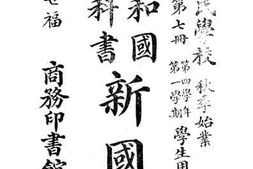 民學校 秋季始業
第七冊 第四學年 第一學期 學生用
和國
科書
新國
福
商務印書館